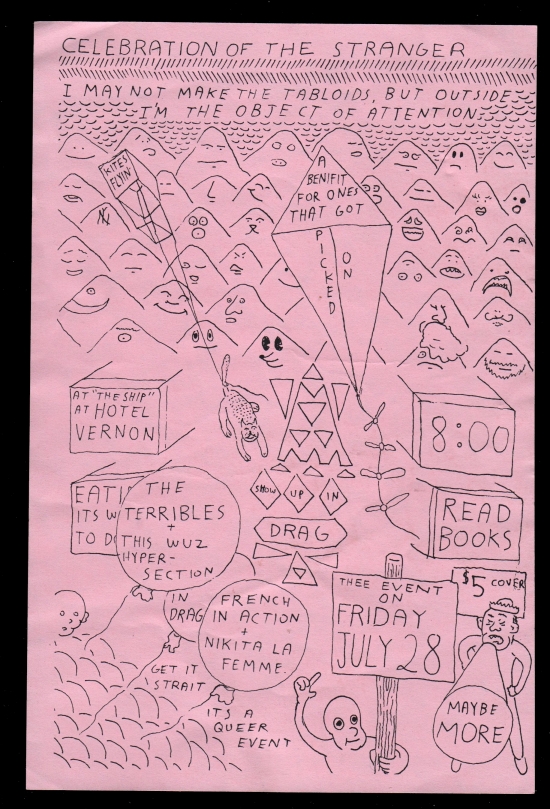 CELEBRATION OF THE STRANGER
I MAY NOT MAKE THE TABLOIDS, BUT OUTSIDE
I'M THE OBJECT OF ATTENTION
KITES
FLYIN
A
BENIFIT
FOR ONES
THAT GOT
PICKED
ON
AT "THE SHIP"
AT HOTEL
VERNON
8:00
SHOW
UP
IN
DRAG
READ
BOOKS
ITS
TO
THE
TERRIBLES
+
THIS WUZ
HYPER-
SECTION
IN
DRAG
FRENCH
IN ACTION
+
NIKITA LA
FEMME.
GET IT
STRAIT
IT'S A
QUEER
EVENT
THEE EVENT
ON
FRIDAY
JULY 28
$5 COVER
MAYBE
MORE